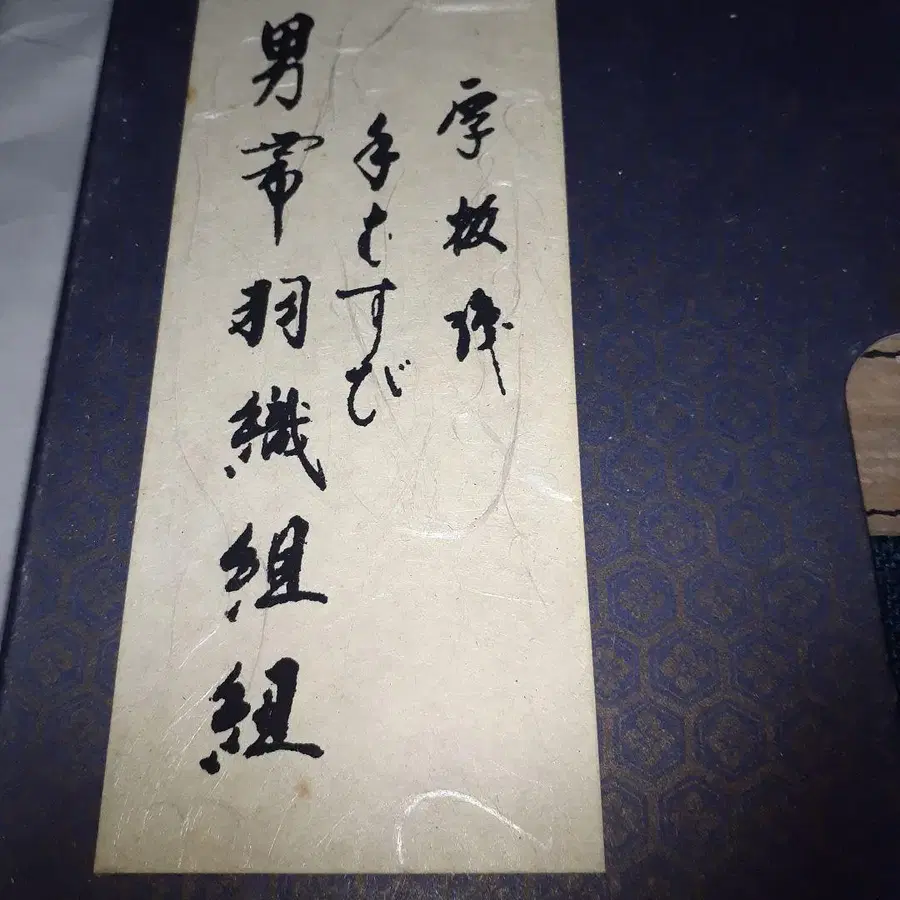 厚板
手むすび
男帯羽織組紐